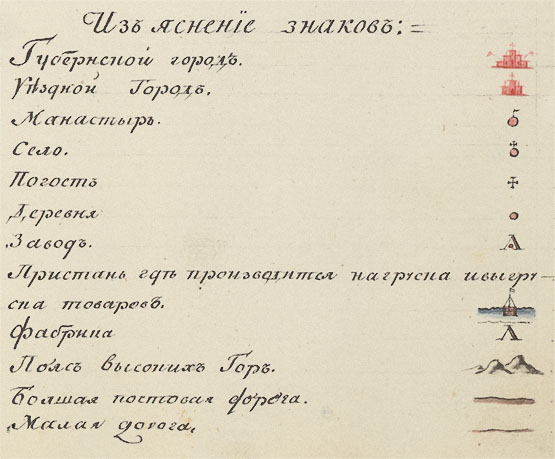 Изъясненіе знаковъ:=
Губернской городъ.
Уѣздной Городъ.
Манастырь.
Село.
Погостъ
Деревня
Заводъ.
Пристань гдѣ производится нагруска ивыгру-
ска товаровъ.
Фабрика
Поясъ высокихъ Горъ.
Болшая постовая дорога.
Малая дорога.